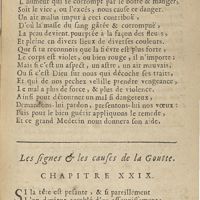 L'aliment qui se corrompt par le boire & manger,
Soit le vice, ou l'excés, nous cause ce danger.
Un air malin impur à ceci contribuë,
D'où la masse du sang gâtée & corrompuë,
La peau devient pourprée à la façon des fleurs
Et pleine en divers lieux de diverses couleurs.
Que si tu reconnois que la fiévre est plus forte,
Le corps est violet, ou bien rouge, il n'importe:
Mais si c'est un aspect, un astre, un air mouvant,
Ou si c'est Dieu sur nous qui décoche ses traits,
Et qui de nos pechez veüille prendre vengeance,
Le mal a plus de force, & plus de violence.
Ainsi pour détourner un mal si dangereux,
Demandons-lui pardon, presentons-lui nos vœux:
Puis pour le bien guérir appliquons le remede,
Et ce grand Medecin nous donnera son aide.
Les signes & les causes de la Goutte.
CHAPITRE XXIX.
SI la tête est pesante, & si pareillement